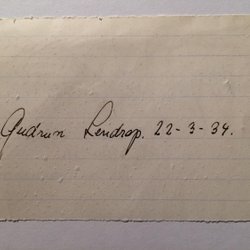 Gudrun Lendrop. 22-3-34.